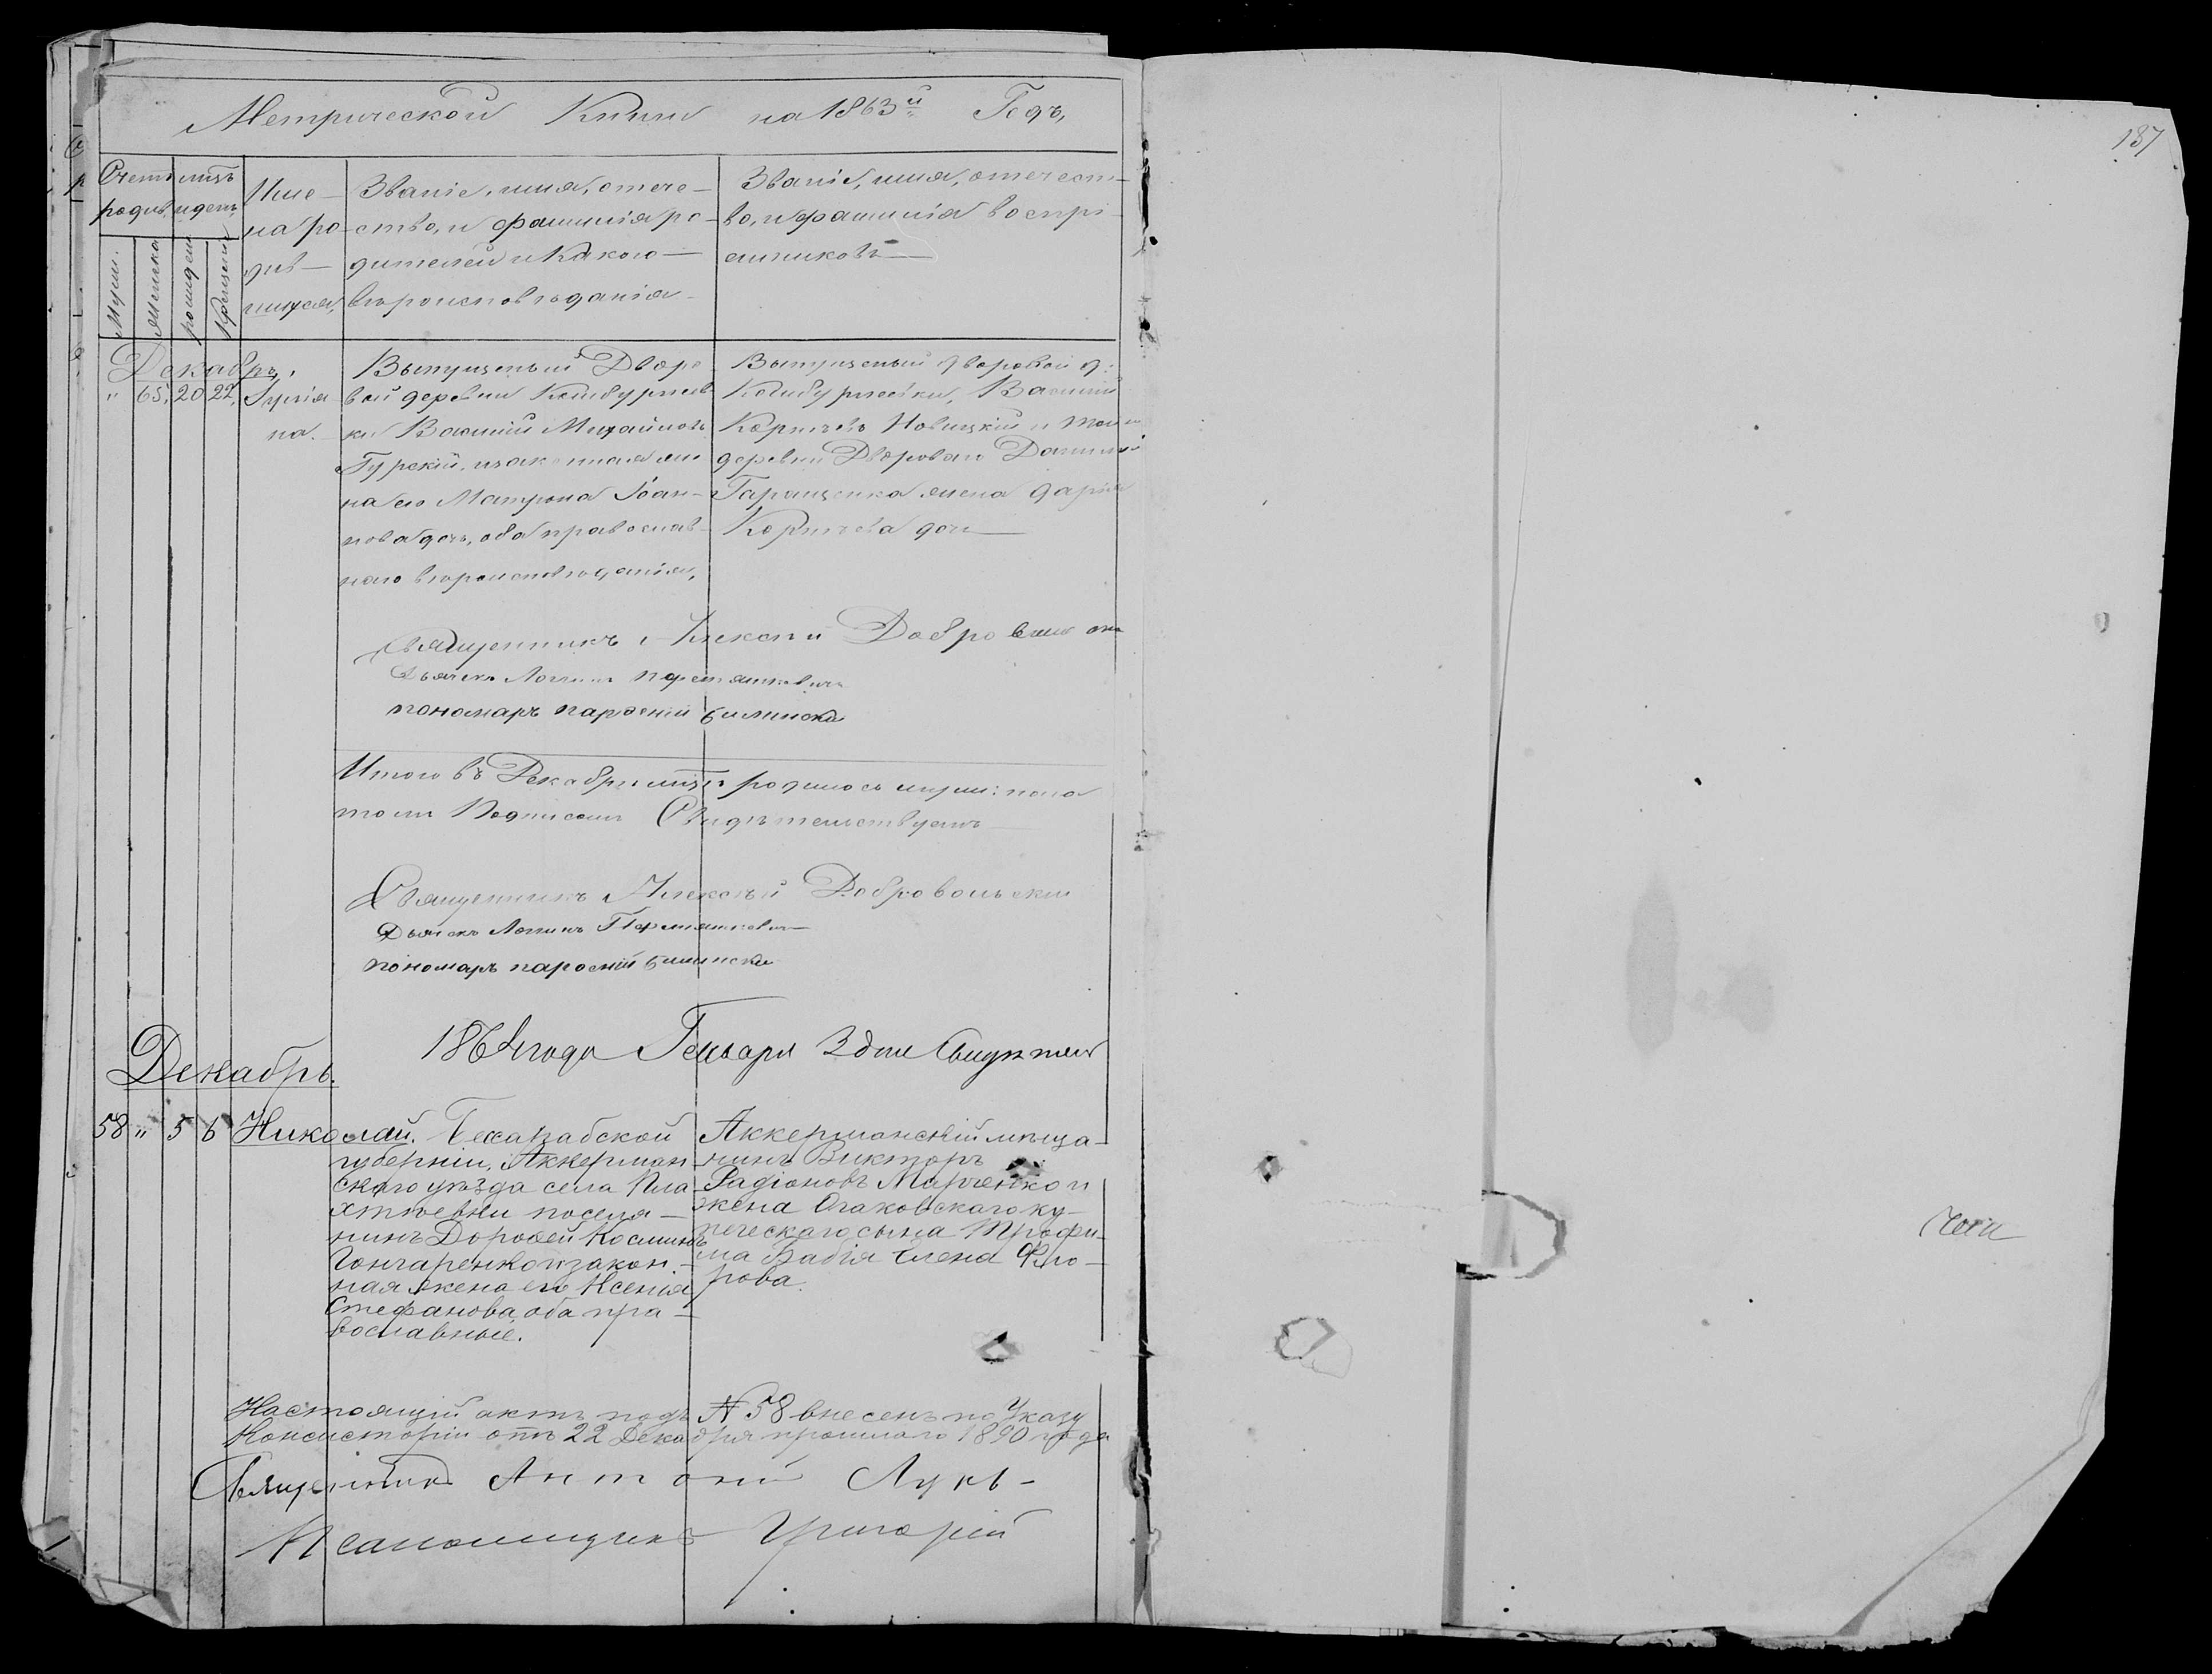 Метрической Книги на 1863й Годъ,
187
Счетъ мѣсъ
родив. и день,
Муж.
Женска
рожден
Крещен
Име-
на ро-
див-
шихся,
Званіе, имя, отече-
ство, и фамилія ро-
дителей и Какого
вѣроисповѣданія
Званіе, имя, отечест-
во, и фамилія воспрі-
емниковъ
Декабрь,
" 65. 20 22,
Іуліа-
на.
Выпущеный Дворо
вый деревни Копибуржев-
ки Василій Михайловъ
Гурскій, изаконная же
на его Матрона Іоан-
нова дочь, оба православ-
наго вѣроисповѣданія,
Выпущеный дворовой д:
Василій
Корнѣевъ Новицкій и той
деревни Дворован Даниила
Гаращенка жена Дарія
Корнѣева доч
Священникъ Алексѣй Добровольски
Дьячекъ Логинъ
пономаръ парѳеній билински
Итого въ Декабри мѣсцѣ родилось муж: пола
Подписомъ Свидѣтельствуемъ
Священникъ Алексѣй Добровольски
Дьячекъ Логинъ
пономаръ парѳеній билински
1864 года Генваря 3 дня Свидѣтел
Декабрь.
58 " 5 6 Николай.
Бессарабской
губерніи, Аккерман
скаго уѣзда села Пла
хтѣевки поселя-
нинъ Дороѳей Косминъ
Гончаренко и закон-
ная жена его Ксенія
Стефанова, оба пра-
вославные.
Аккерманскій мѣща-
нинъ Викторъ
Радіоновъ Марченко и
жена Очаковскаго ку-
печескаго сына Трофи-
ма Бабія Елена Фло-
рова.
Настоящій актъ подъ № 58 внесенъ по Указу
Консисторіи отъ 22 Декабря прошлаго 1890 года
Священникъ Антоній Лукь-
Псаломщикъ Григорій